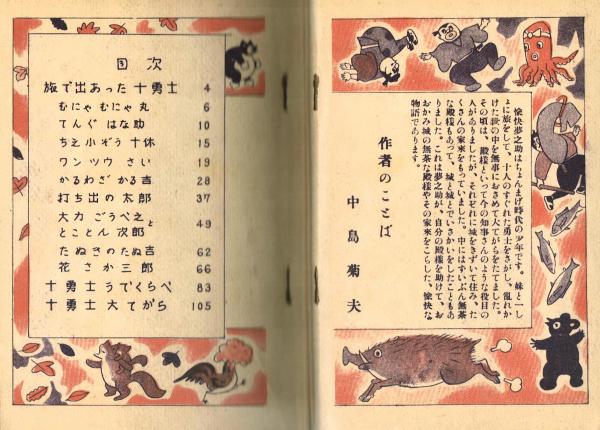 目次
旅で出あった 十勇士 4
むにゃ むにゃ 丸 6
てんぐ はな助 10
ちえ小ぞう 十休 15
ワン ツウ さい 19
かるわざ かる吉 28
打ち出の 太郎 37
大力 ごうべえと
とことん 次郎 49
たぬきのたぬ吉 62
花 さか 三郎 66
十勇士 うでくらべ 83
十勇士 大てがら 105
作者のことば
中島菊夫
愉快夢之助はちょんまげ時代の少年です。妹と一し
ょに旅をして、十人のすぐれた勇士をさがし、乱れか
けた世の中を無事におさめて大てがらをたてました。
その頃は、殿様といって今の知事さんのような役目の
人がありましたが、それぞれに城をきずいて住み、た
くさんの家来をもっていました。中にはずいぶん無茶
な殿様もあって、城と城とでいさかいをしたこともあ
りました。これは夢之助が、自分の殿様を助けて、お
おかみ城の無茶な殿様やその家来をこらした、愉快な
物語であります。